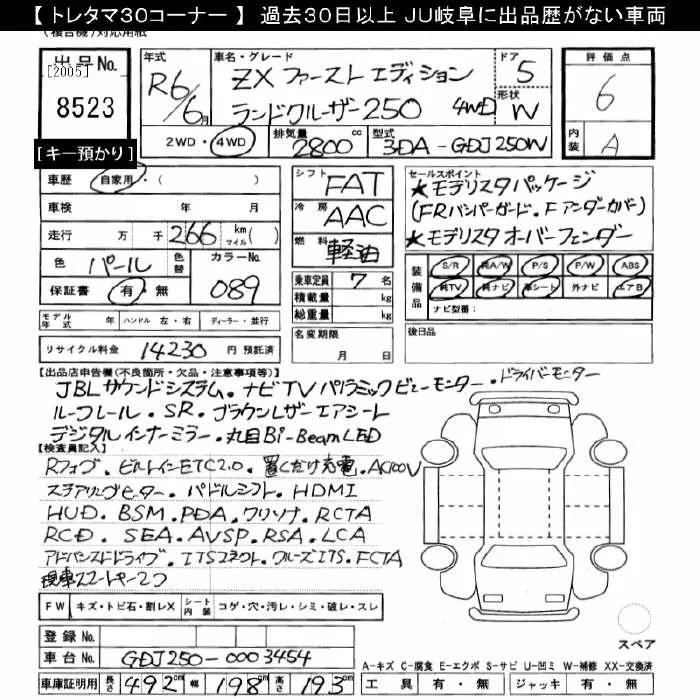 【トレタマ30コーナー】 過去30日以上 JU岐阜に出品歴がない車両
(複合機)対応用紙
出品No.
[2005]
8523
[キー預かり]
年式
R6/6月
車名・グレード
ZX ファーストエディション
ランドクルーザー250 4WD
ドア
5
形状
W
評価点
6
内装
A
2WD・4WD
排気量
2800cc
型式
3DA-GDJ250W
車歴 自家用・( )
車検 年 月
走行 万 千 266 km マイル( )
色 パール 色替 カラーNo. 089
保証書 有・無
シフト FAT
冷房 AAC
燃料 軽油
乗車定員 7名
積載量 kg
総重量 kg
名変期限 月 日
セールスポイント
★モデリスタパッケージ
(FRバンパーガード.Fアンダーカバー)
★モデリスタオーバーフェンダー
装備品
S/R 純A/W P/S P/W ABS
純TV 純ナビ 革シート 外ナビ エアB
ナビ型番:
後日品
モデル年式 年 ハンドル 左・右 ディーラー・並行
リサイクル料金 14230 円 預託済
【出品店申告欄(不良箇所・欠品・注意事項等)】
JBLサウンドシステム.ナビTVパノラミックビューモニター.ドライバーモニター
ルーフレール.SR.ブラウンレザーエアシート
デジタルインナーミラー.丸目Bi-BeamLED
【検査員記入】
Rフォグ.ビルトインETC2.0.置くだけ充電.AC100V
ステアリングヒーター.パドルシフト.HDMI
HUD.BSM.PDA.クリソナ.RCTA
RCD.SEA.AVSP.RSA.LCA
アドバンスドドライブ.ITSコネクト.クルーズITS.FCTA
現車スマートキー2つ
FW キズ・トビ石・割レX シート内装 コゲ・穴・汚レ・シミ・破レ・スレ
登録No.
車台No. GDJ250-0003454
車庫証明用 長さ 492cm 幅 198cm 高さ 193cm
スペア
A-キズ C-腐食 E-エクボ S-サビ U-凹ミ W-補修 XX-交換済
工具 有・無 ジャッキ 有・無